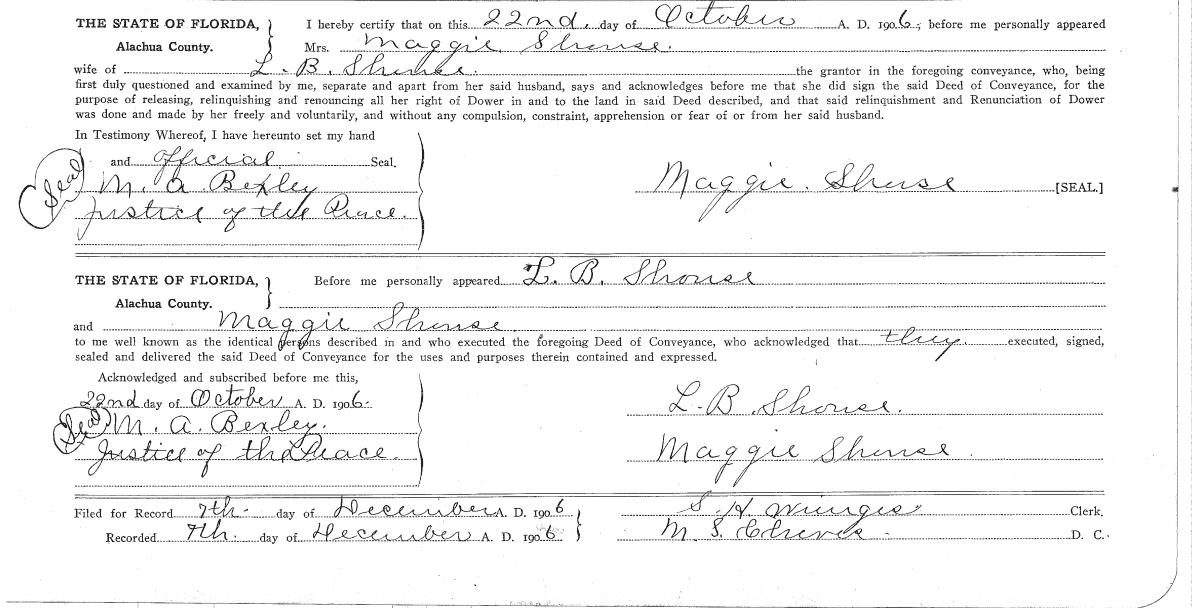 THE STATE OF FLORIDA, I hereby certify that on this 22nd. day of October A. D. 1906, before me personally appeared
Alachua County. Mrs. Maggie Shouse.
wife of L. B. Shouse. the grantor in the foregoing conveyance, who, being
first duly questioned and examined by me, separate and apart from her said husband, says and acknowledges before me that she did sign the said Deed of Conveyance, for the
purpose of releasing, relinquishing and renouncing all her right of Dower in and to the land in said Deed described, and that said relinquishment and Renunciation of Dower
was done and made by her freely and voluntarily, and without any compulsion, constraint, apprehension or fear of or from her said husband.
In Testimony Whereof, I have hereunto set my hand
and official Seal.
Seal M. A. Bexley Maggie. Shouse [SEAL.]
Justice of the Peace.
THE STATE OF FLORIDA, Before me personally appeared L. B. Shouse
Alachua County.
and Maggie Shouse.
to me well known as the identical persons described in and who executed the foregoing Deed of Conveyance, who acknowledged that they executed, signed,
sealed and delivered the said Deed of Conveyance for the uses and purposes therein contained and expressed.
Acknowledged and subscribed before me this,
22nd day of October A. D. 1906. L. B. Shouse.
Seal M. A. Bexley.
Justice of the Peace. Maggie Shouse.
Filed for Record 7th. day of December A. D. 1906 S. H. Wienges Clerk.
Recorded 7th. day of December A. D. 1906. M. S. Cheves D. C.